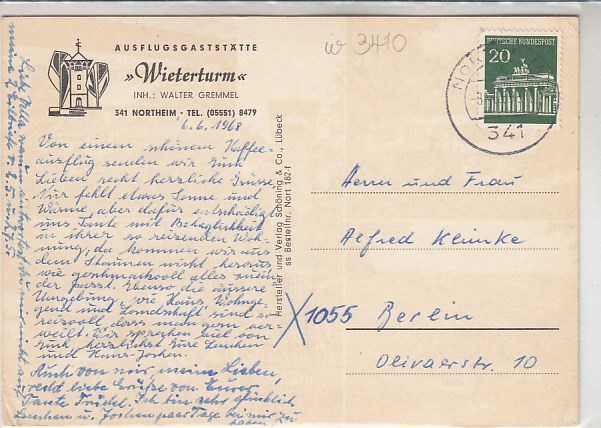 AUSFLUGSGASTSTÄTTE
»Wieterturm«
INH.: WALTER GREMMEL
341 NORTHEIM - TEL. (05551) 8479
6.6.1968
Von einem schönen Kaffee-
ausflug senden wir Euch
Lieben recht herzliche Grüsse.
Nur fehlt etwas Sonne und
Wärme aber dafür entschädigt
uns Tante mit Behaglichkeit
in ihrer so reizenden Woh-
nung, da kommen wir aus
dem Staunen nicht heraus
wie geschmackvoll alles zuein
der passt. Ebenso die äussere
Umgebung wie Haus, Wohnge-
gend und Landschaft sind so
reizvoll, dass man gern ver-
weilt. Wir sprechen viel von
Euch herzlichst Eure
und Hans-Jochen.
Auch von mir, meine Lieben,
recht liebe Grüße von Eurer
Tante Trudel. Ich bin sehr glücklich
u. Jochen paar Tage bei mir zu
haben.
Hersteller und Verlag Schöning & Co., Lübeck
ss Bestellnr. Nort 182 f
w 3410
DEUTSCHE BUNDESPOST
20
NOR
341
Herrn und Frau
Alfred Klinke
X 1055 Berlin
Olivaerstr. 10